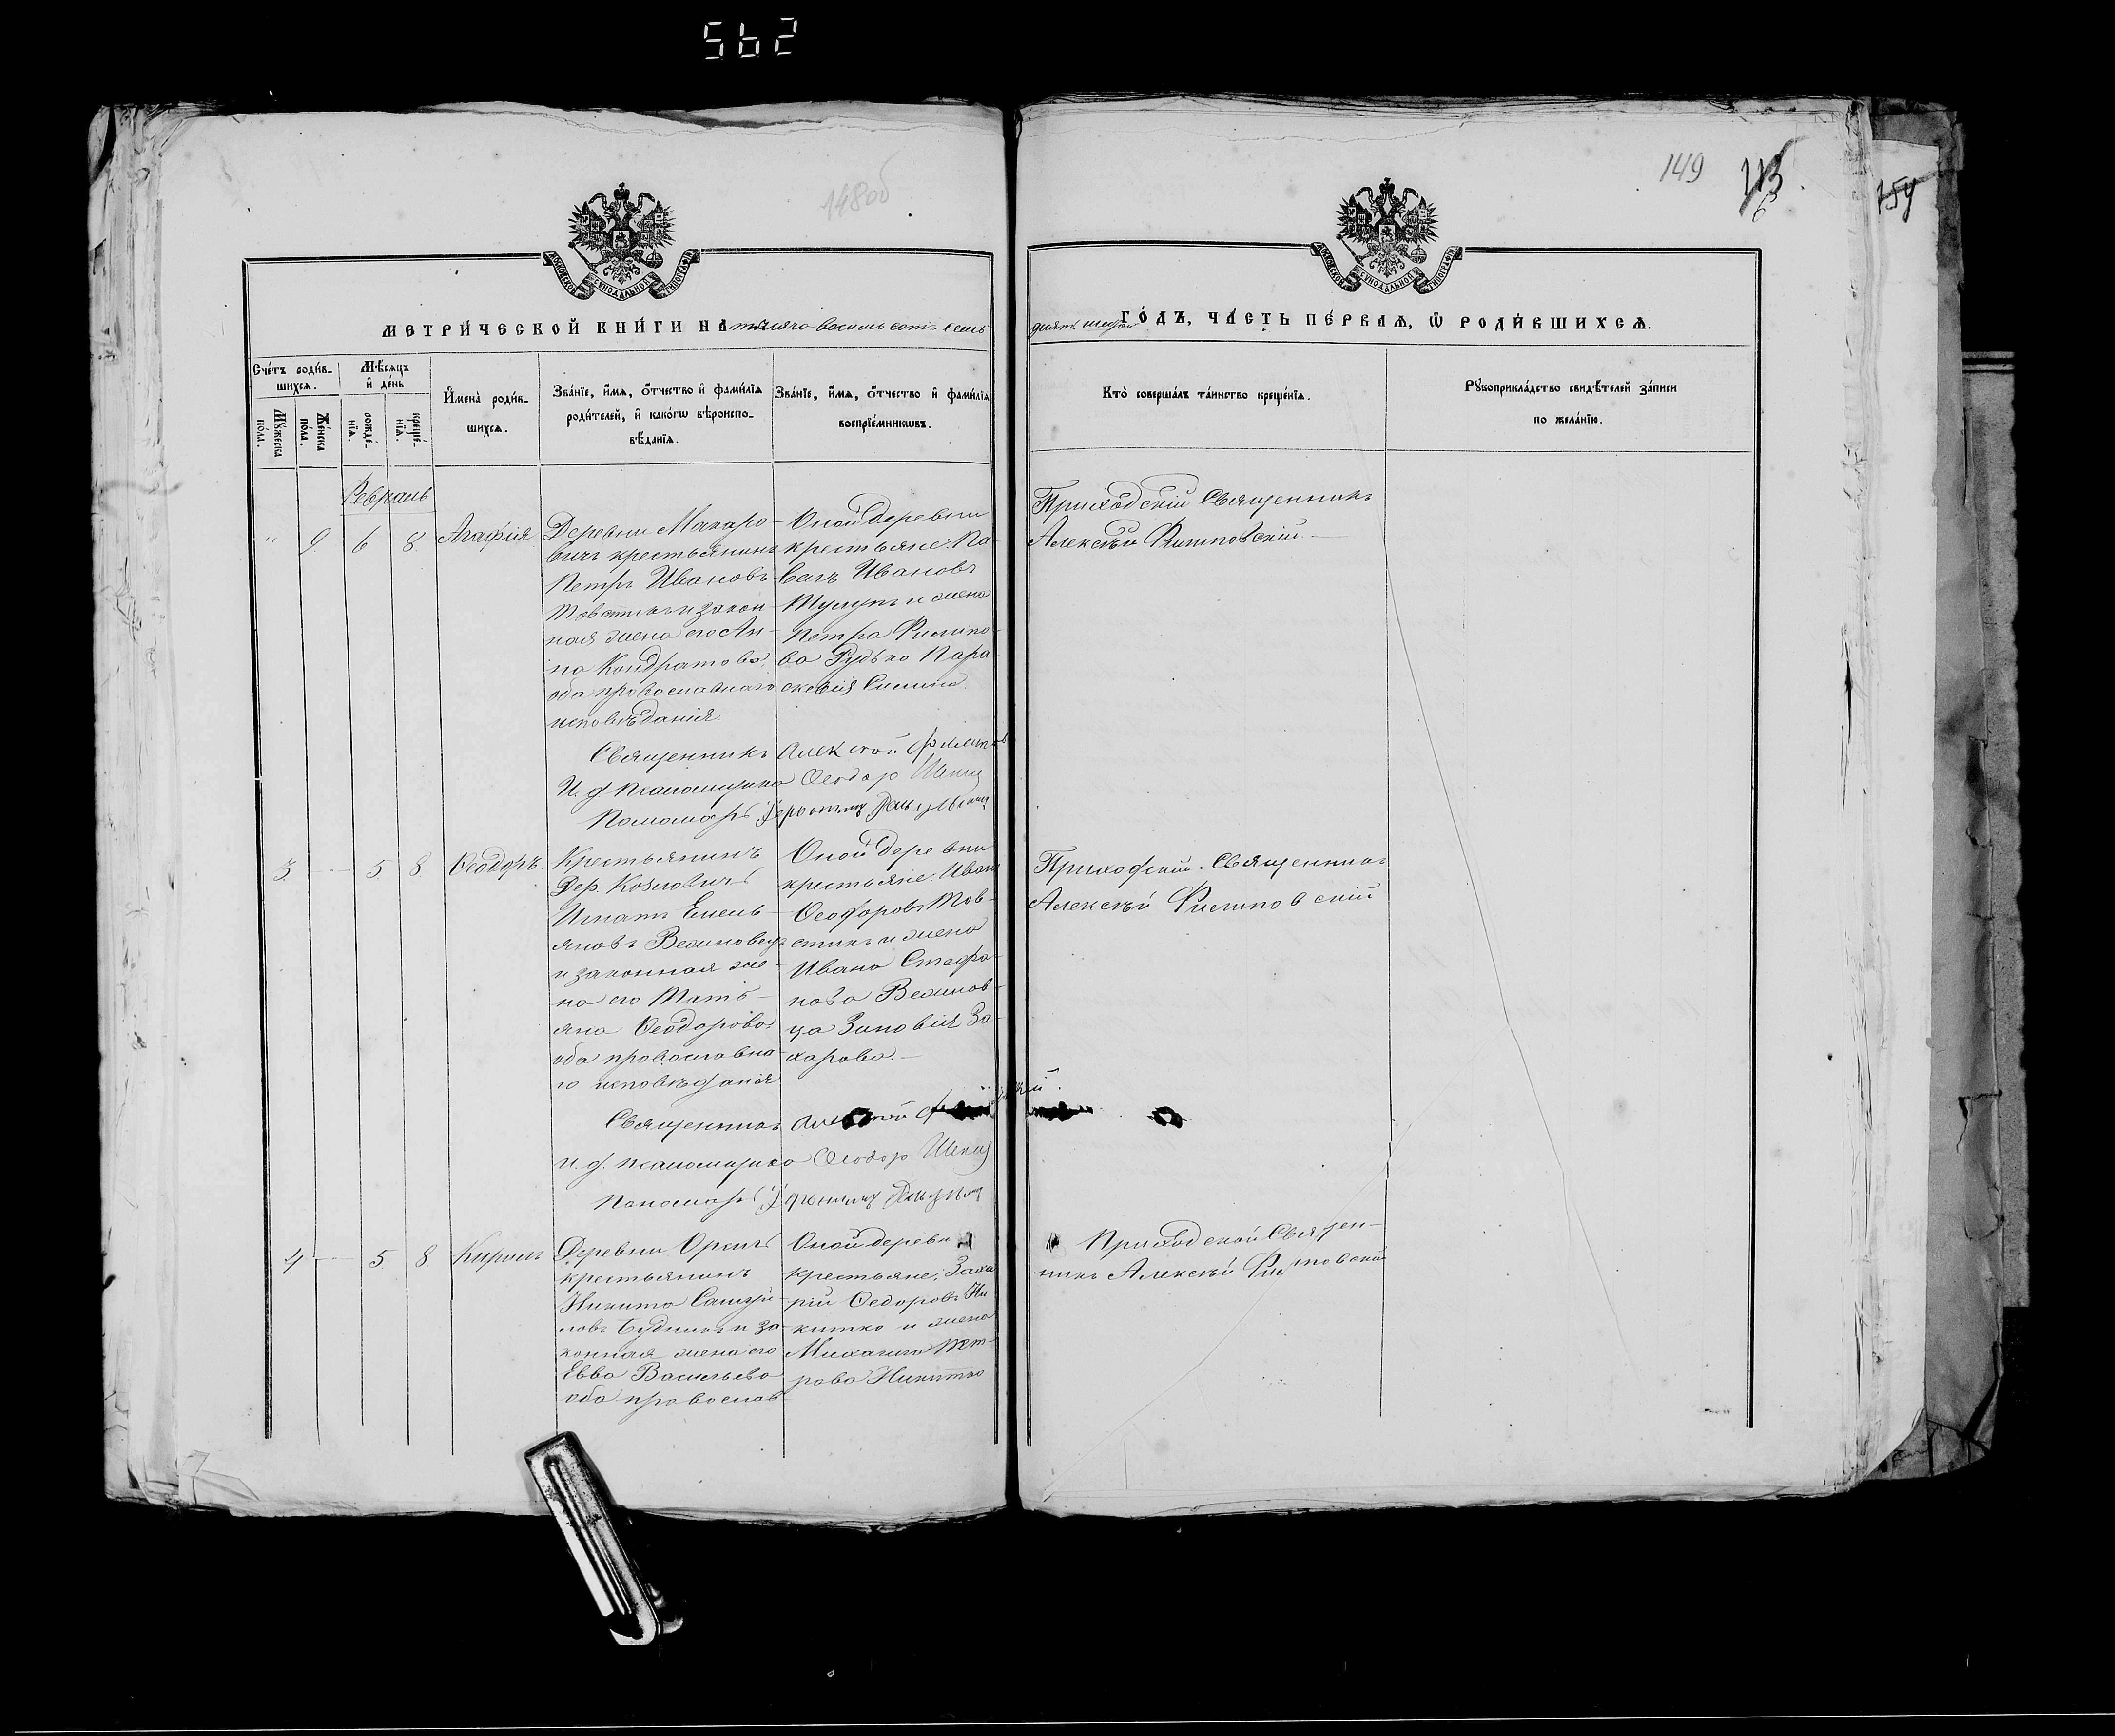 562
148об
149
МЕТРИ́ЧЕСКОЙ КНИ́ГИ НА тысяча восемь сотъ семь
десятъ ГО́ДЪ, ЧА́СТЬ ПЕ́РВАЯ, Ѡ РОДИ́ВШИХСЯ.
Сче́тъ роди́в-
шихся.
Мꙋ́жеска по́ла.
Же́нска по́ла.
Мѣ́сяцъ и҆ де́нь
рожде́-нїя.
креще́-нїя.
И҆мена̀ роди́в-
шихся.
Зва́нїе, и҆́мя, ѻ҆́тчество и҆ фами́лїя
роди́телей, и҆ како́гѡ вѣроиспо-
вѣ́данїя.
Зва́нїе, и҆́мя, ѻ҆́тчество и҆ фами́лїя
воспрїе́мникѡвъ.
Кто̀ соверша́лъ та́инство креще́нїя.
Рꙋкоприкла́дство свидѣ́телей за́писи
по жела́нїю.
Февраль
" 9 6 8 Агафія
Деревни Макаро-
вичъ крестьянинъ
Петръ Ивановъ
Товстикъ и закон-
ная жена его Ан-
на Кондратова,
оба православнаго
исповѣданія.
Оной деревни
крестьяне: Па-
велъ Ивановъ
и жена
Петра Филипо-
ва Рудько Пара-
скевія
Приходскій Священникъ
Алексѣй Филиповскій
Священникъ Алексѣй
И. д. псаломщика Ѳеодоръ
Пономарь
3 — 5 8 Ѳеодоръ
Крестьянинъ
Дер. Козловичъ
Игнатъ Емель-
яновъ
и законная же-
на его Тать-
яна Ѳеодорова
оба православна-
го исповѣданія
Оной деревни
крестьяне: Иванъ
Ѳеодоровъ Тов-
стикъ и жена
Ивана Стефа-
нова
Зиновія За-
харова.
Приходскій Священникъ
Алексѣй Филиповскій
Священникъ
И. д. псаломщика Ѳеодоръ
Пономарь
4 — 5 8 Кирилъ
Деревни
крестьянинъ
Никита Самуй-
ловъ и за-
конная жена его
Евва Васильева
оба православ-
Оной деревни
крестьяне: Заха-
рій Ѳедоровъ Ни-
китко и жена
Михаила Пет-
рова Никитко
Приходской Священ-
никъ Алексѣй Филиповскій